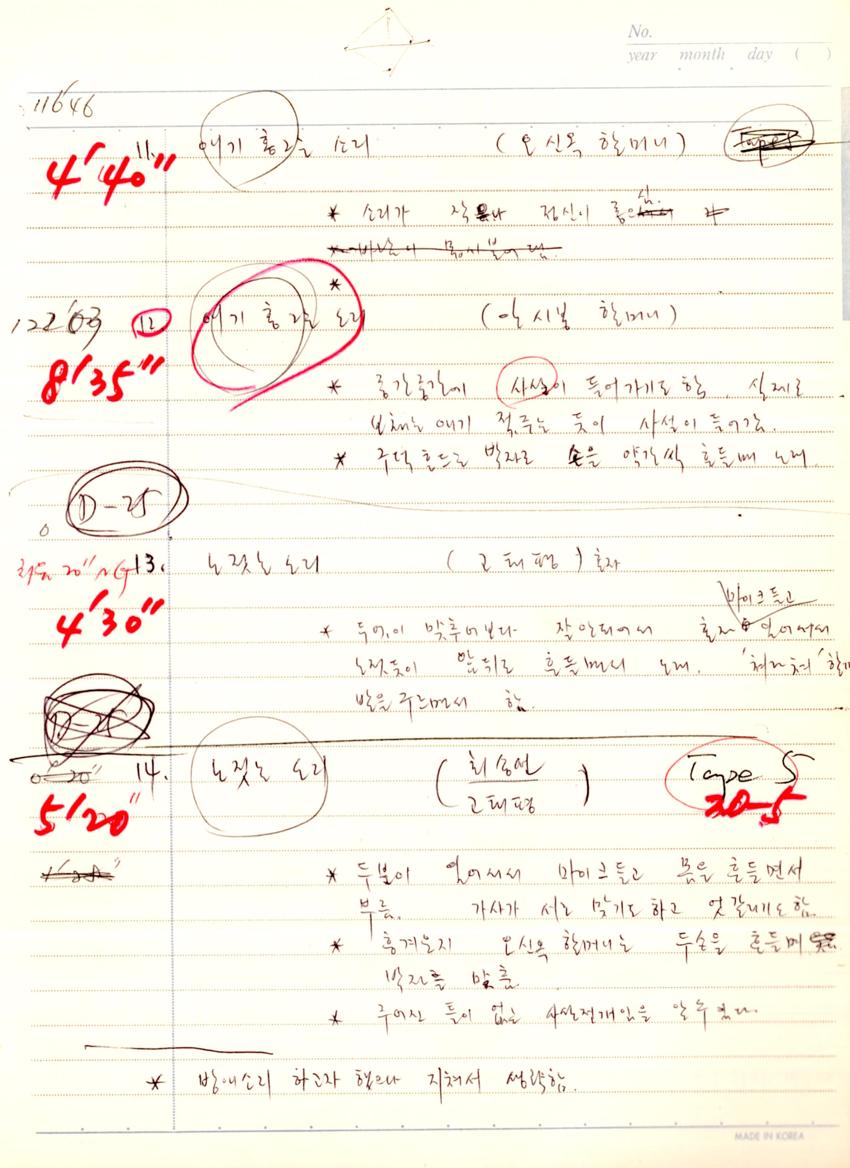 No.
year month day ( )
116'46
4'40" 11. 애기 흥그는 소리 (오신옥 할머니) Tape5
* 소리가 작으나 정신이 좋으심.
122'03 12 애기 흥그는 소리 (안시봉 할머니)
8'35"
* 중간중간에 사설이 들어가기도 함. 실제로
보채는 애기 적주는 듯이 사설이 들어감.
* 구덕 흔드는 박자로 손을 약간씩 흔들며 노래.
D-25
0
최초 20" NG 13. 노젓는 소리 (고태평) 혼자
4'30"
마이크 들고
* 두어이 맞추어보다 잘 안되어서 혼자 일어서서
노젓듯이 앞뒤로 흔들면서 노래. '쳐라쳐'
발을 구르면서 함.
D-25
0-20" 14. 노젓는 소리 (최승연 고태평) Tape 5
5'20" 20-5
* 두분이 일어서서 마이크 들고 몸을 흔들면서
부름. 가사가 서로 맞기도 하고 엇갈리기도 함.
* 흥겨운지 오신옥 할머니는 두손을 흔들며
박자를 맞춤.
* 주어진 틀이 없는 사설전개임을 알 수 있다.
* 방애소리 하고자 했으나 지쳐서 생략함.
MADE IN KOREA